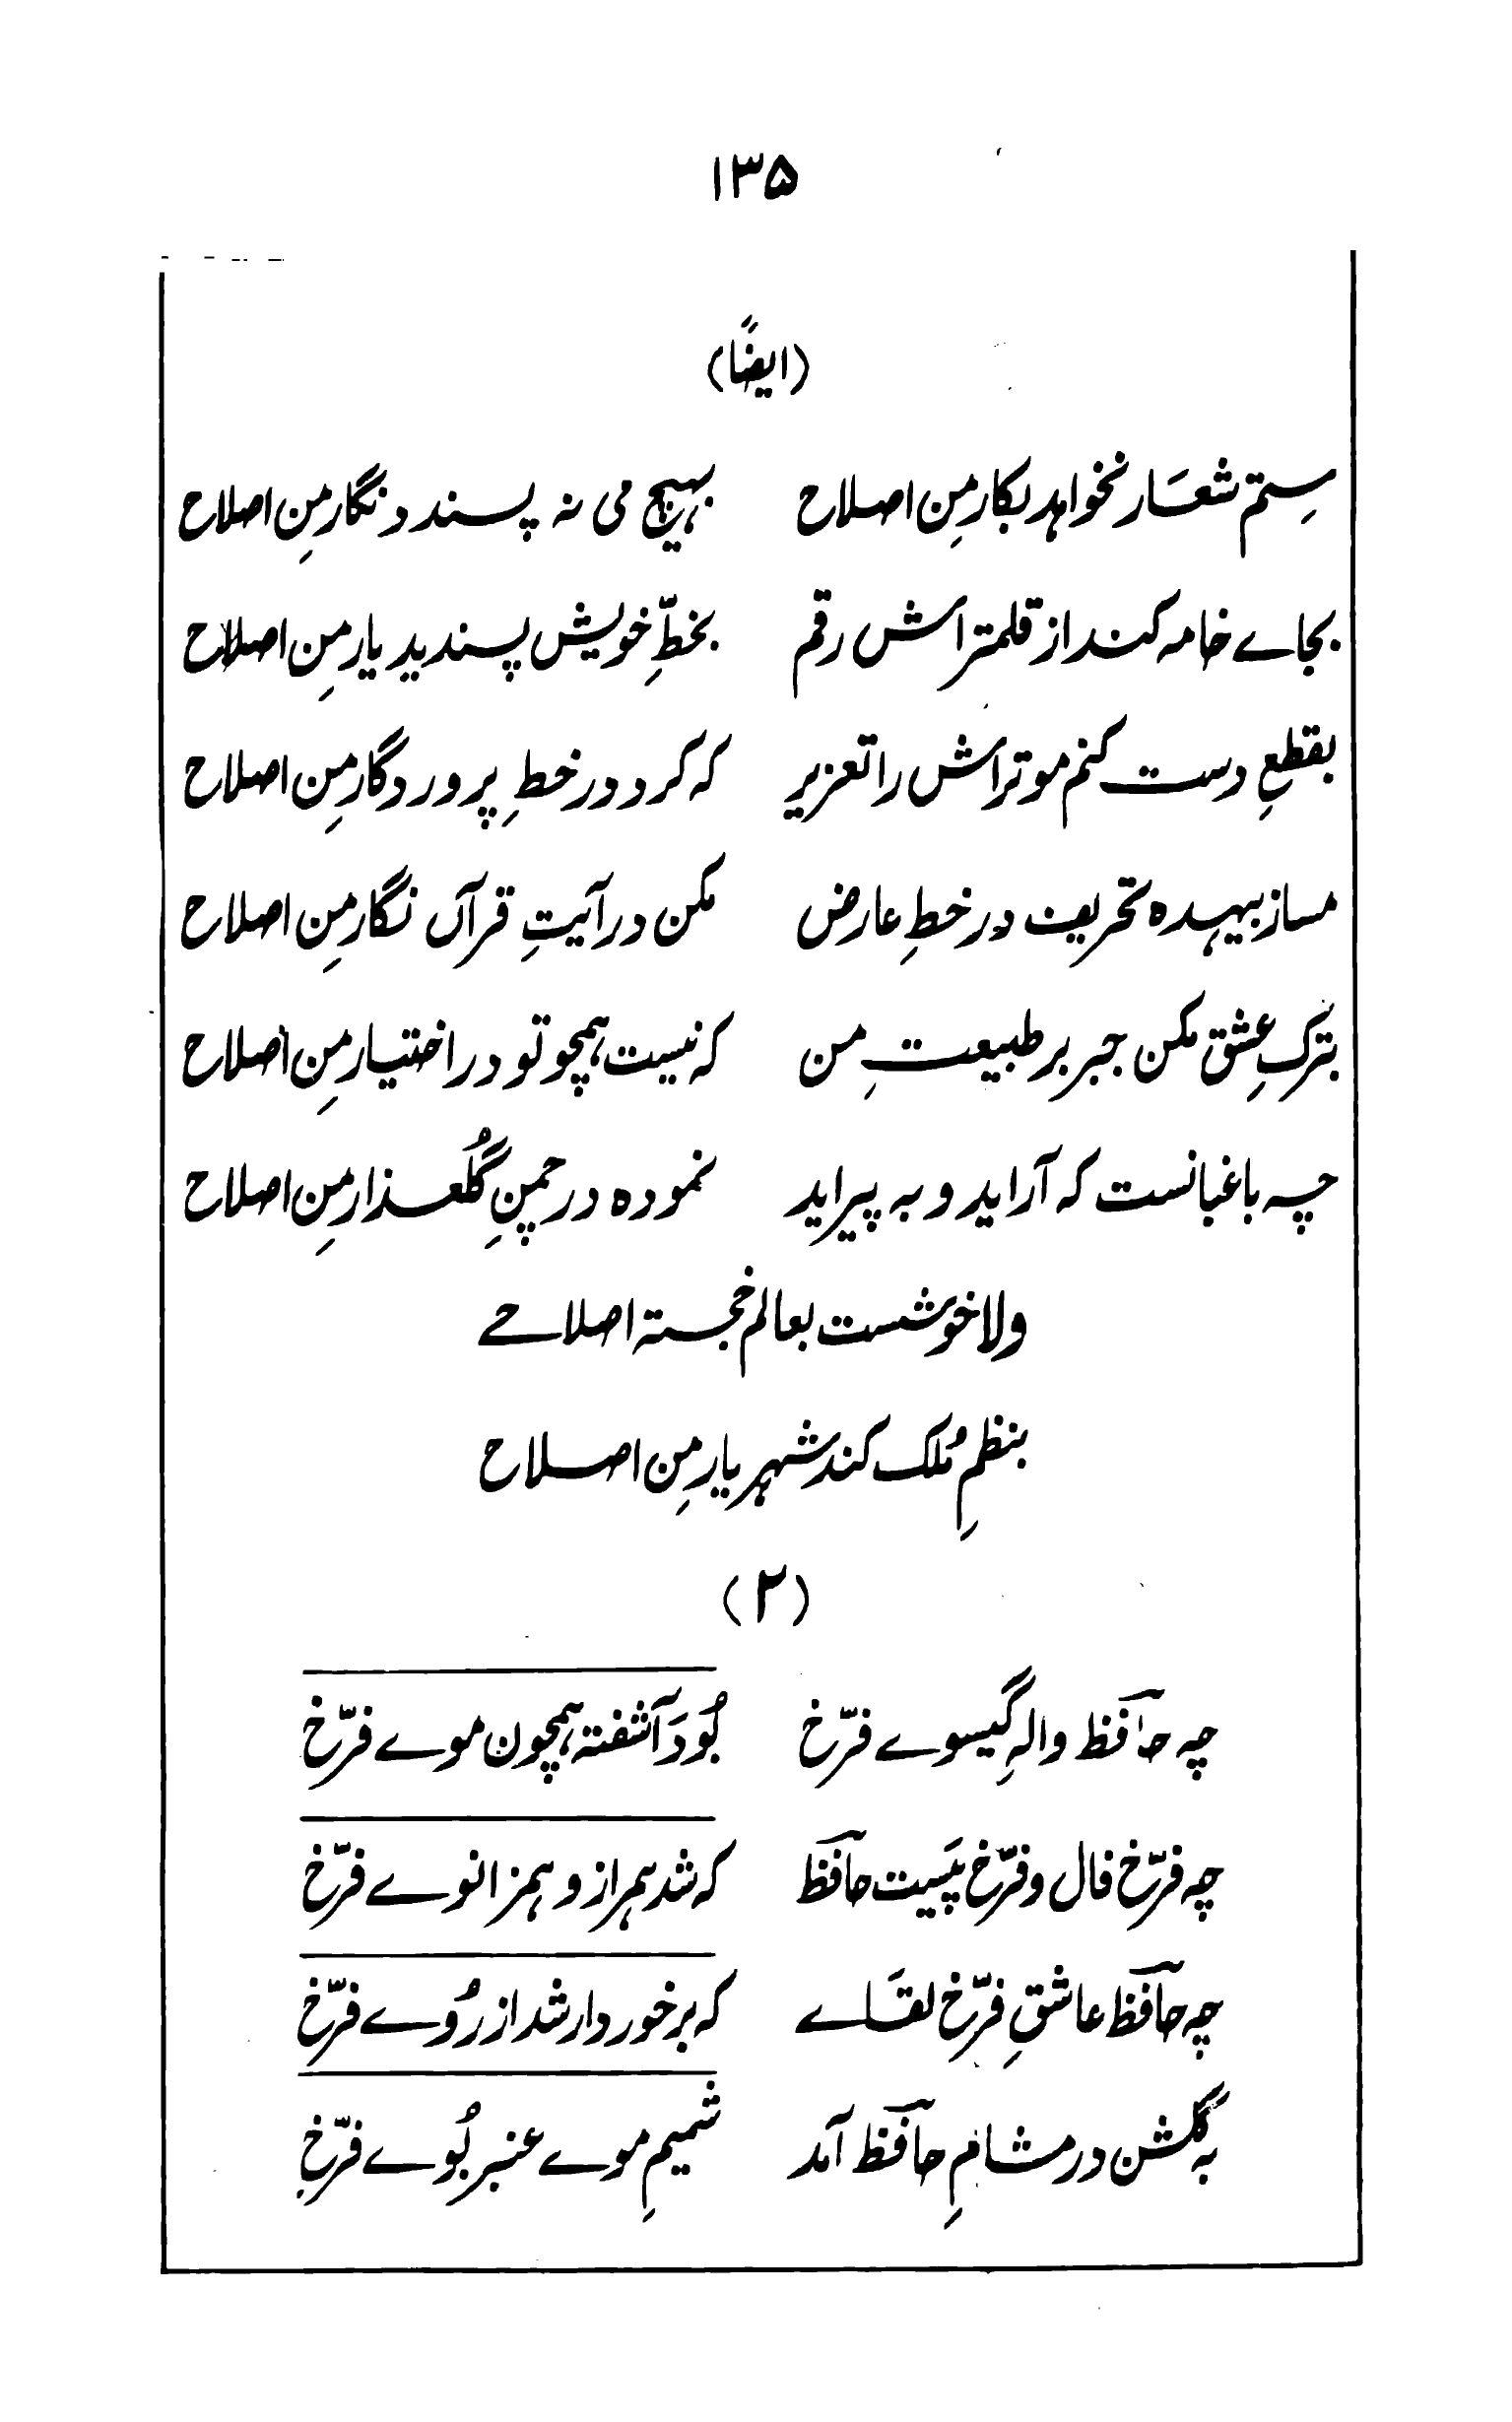 ۱۳۵
(ایضاً)
ستم شعار نخواہد بکارِ من اصلاح بہیچ می نہ پسندد نگارِ من اصلاح
بجاے خامہ کند از قلمتراش رقم بخطِّ خویش پسندید یارِ من اصلاح
بقطعِ دست کنم موتراش را تعزیر کہ کرد در خطِ پروردگارِ من اصلاح
مساز بیہدہ تحریف در خطِ عارض مکن در آیتِ قرآں نگارِ من اصلاح
بترکِ عشق مکن جبر بر طبیعتِ من کہ نیست ہمچو تو در اختیارِ من اصلاح
چہ باغبانست کہ آراید و بہ پیراید نمودہ در چمنِ گُلعذارِ من اصلاح
ولا خوشست بعالم خجستہ اصلاحے
بنظمِ مُلک کند شہریارِ من اصلاح
(۲)
چہ حافظ والہِ گیسوے فرّخ بُوَد آشفتہ ہمچون موے فرّخ
چہ فرّخ فال و فرّخ پَیست حافظ کہ شد ہمراز و ہمزانوے فرّخ
چہ حافظ عاشقِ فرّخ لقَاے کہ برخوردار شد از رُوے فرّخ
بہ گلشن در مشامِ حافظ آمد شمیمِ موے عنبر بُوے فرّخ